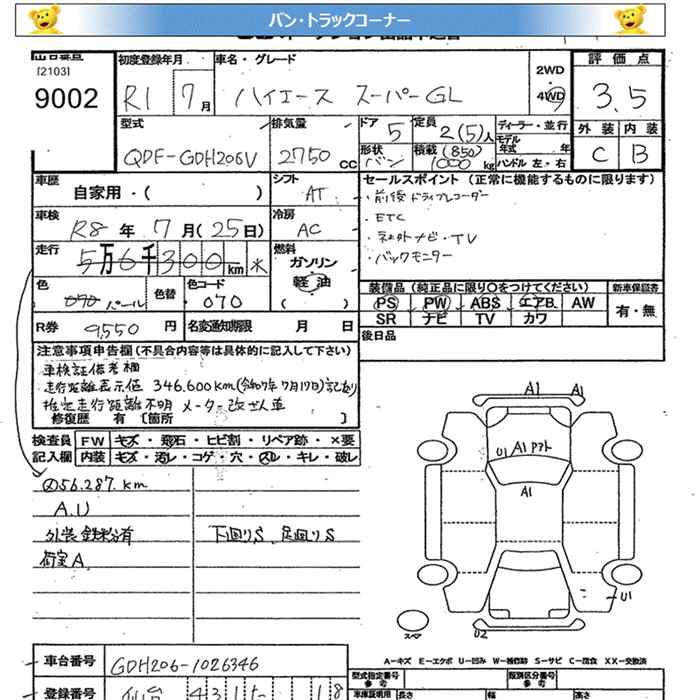 バン・トラックコーナー
[2103]
9002
初度登録年月
R1 7月
車名・グレード
ハイエース スーパーGL
2WD
4WD
評価点
3.5
外装 内装
C B
型式
QDF-GDH206V
排気量
2750 CC
ドア 5
定員 2(5)人
形状 バン
積載 (850) 1000 kg
ディーラー・並行
モデル年式 年
ハンドル 左・右
車歴
自家用・( )
シフト
AT
車検
R8年 7月(25日)
冷房
AC
走行
5万6千300km ✕
燃料
ガソリン
軽油
( )
色
070 パール
色替
色コード
070
R券 9,550円
名変通知期限 月 日
セールスポイント (正常に機能するものに限ります)
・前後ドライブレコーダー
・ETC
・社外ナビ・TV
・バックモニター
装備品(純正品に限り○をつけてください)
PS PW ABS エアB. AW
SR ナビ TV カワ
新車保証書
有・無
後日品
注意事項申告欄(不具合内容等は具体的に記入して下さい)
車検証備考欄
走行距離表示値 346,600km(令和7年7月17日)記載有り
推定走行距離不明 メーター改ざん車
修復歴 有[箇所 ]
検査員記入欄
FW キズ・飛石・ヒビ割・リペア跡・×要
内装 キズ・汚レ・コゲ・穴・スレ・キレ・破レ
56,287.km
A.U
外装鉄粉有
荷室A
下回りS、足回りS
A1 A1
U1 A1 アフト
A1
U1
スペア
U2
A-キズ E-エクボ U-凹み W-補修跡 S-サビ C-腐食 XX-交換済
車台番号 GDH206-1026346
登録番号 仙台 431 18
型式指定番号 参考
類別区分番号 参考
車庫証明用 長さ 幅 高さ